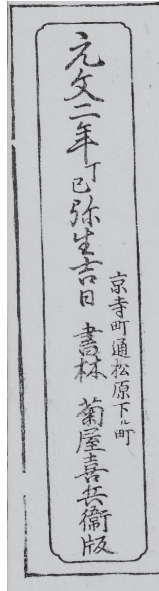 元文二年丁巳弥生吉日
京寺町通松原下ル町
書林 菊屋喜兵衞版